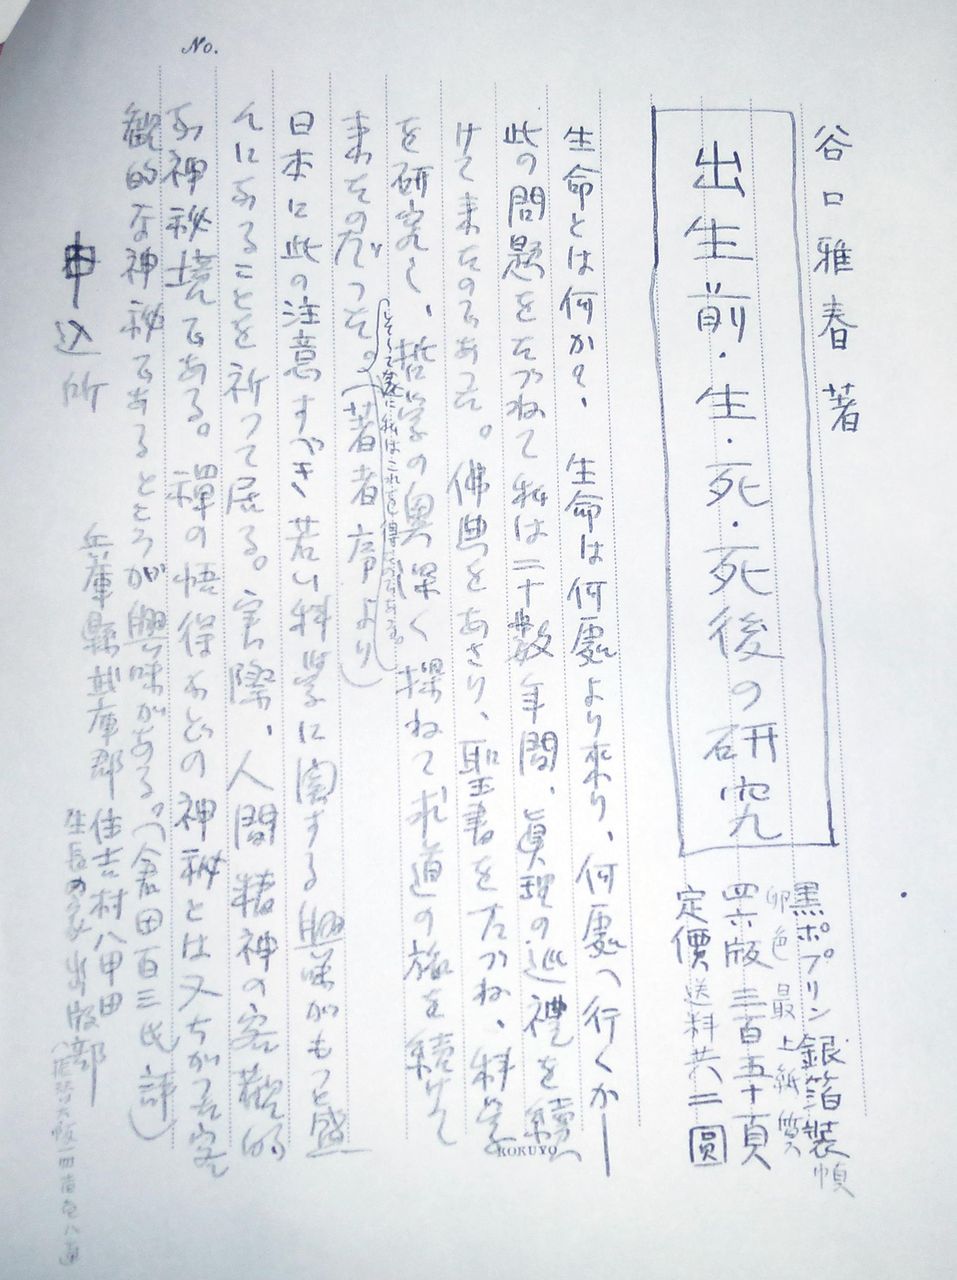 No.
谷口雅春著
出生前・生・死・死後の研究
黒ポプリン銀箔装幀
卵色最上紙質
四六版三百五十頁
定價送料共二圓
生命とは何か?、生命は何處より來り、何處へ行くか―
此の問題をたづねて私は二十数年間、眞理の巡禮を續
けて来たのであつた。佛典をあさり、聖書をたづね、科学
を研究し、哲学の奥深く探ねて求道の旅を続けて
来たのだつた。
そして遂に私はこれを得たのである。
(著者序より)
日本に此の注意すべき若い科学に関する興味がもっと盛
んになることを祈って居る。実際、人間精神の客観的
な神秘境である。禅の悟得などの神秘とは又ちがつた客
観的な神秘であるところが興味がある。(倉田百三氏評)
申込所
兵庫縣武庫郡住吉村八甲田
生長の家出版部
KOKUYO